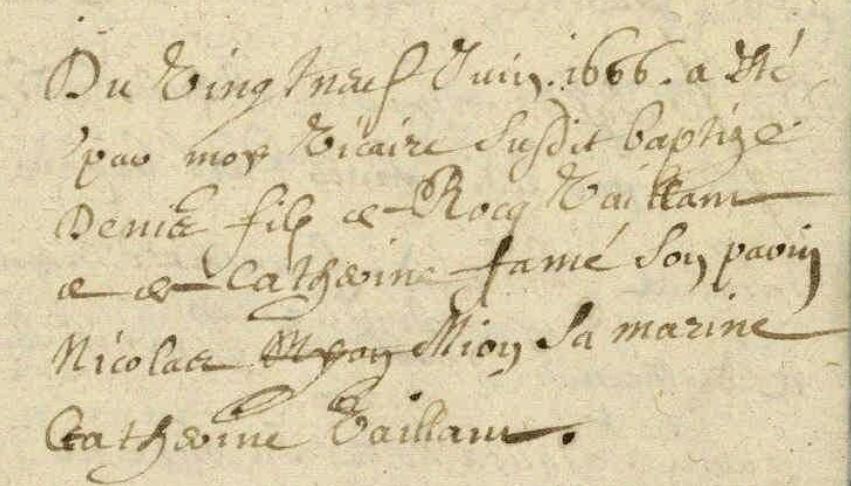 Du Vingtneuf Juin. 1666. a eté
par moy Vicaire susdit baptizé
Denis fils de Rocq Vaillant
et de Catherine famé son parin
Nicolas Myon Mion sa marine
Catherine Vaillant.